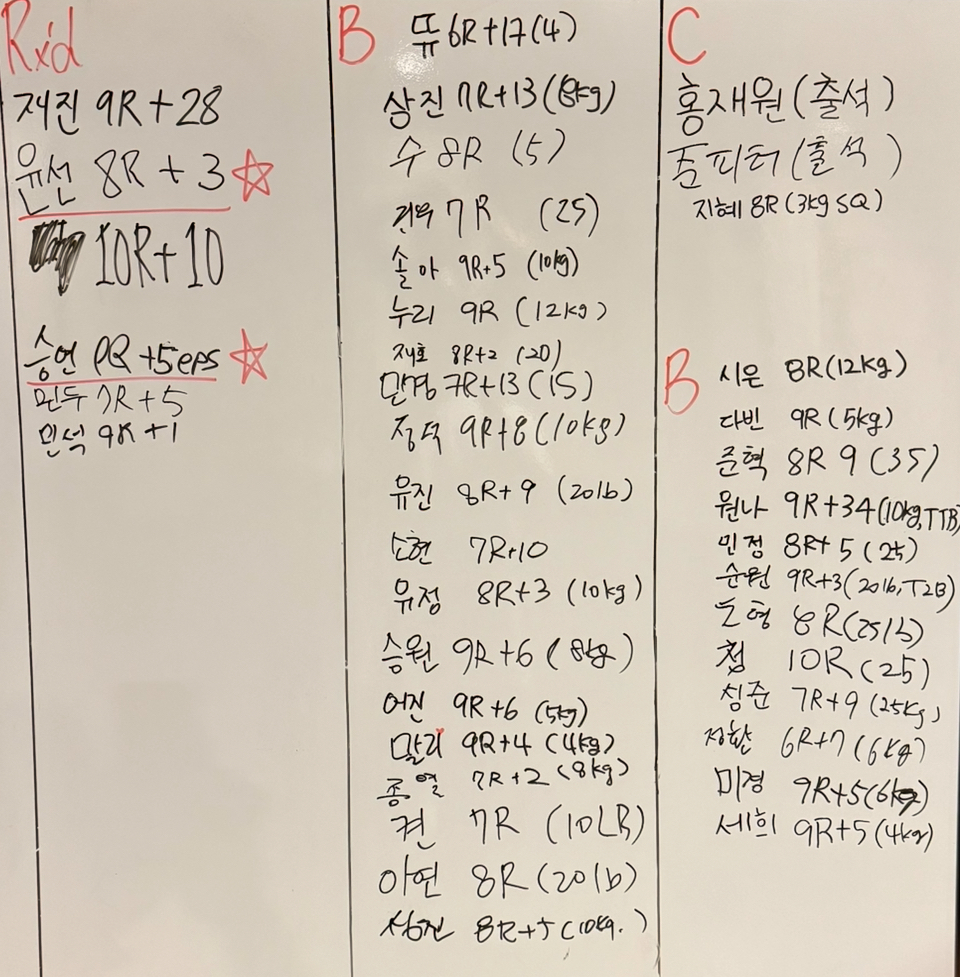 Rx'd
재진 9R+28
윤선 8R+3
10R+10
승연 +5eps
민두 7R+5
민석 9R+1
B
뜌 6R+17(4)
삼진 7R+13(8kg)
수 8R (5)
7R (25)
솔아 9R+5 (10kg)
누리 9R (12kg)
재호 8R+2 (20)
만경 7R+13(15)
정덕 9R+8(10kg)
유진 8R+9 (20lb)
소현 7R+10
유정 8R+3 (10kg)
승원 9R+6 (8kg)
어진 9R+6 (5kg)
말리 9R+4 (4kg)
종열 7R+2 (8kg)
켠 7R (10LB)
아연 8R(20lb)
8R+5(10kg.)
C
홍재원(출석)
줌피터(출석)
지혜 8R(3kg SQ)
B
시은 8R(12kg)
다빈 9R(5kg)
준혁 8R 9 (35)
원나 9R+34(10kg,TTB)
민정 8R+5(25)
순원 9R+3(20lb,T2B)
도형 8R(25lb)
첩 10R(25)
심준 7R+9(25kg)
정환 6R+7(6kg)
미경 9R+5(6kg)
세희 9R+5(4kg)